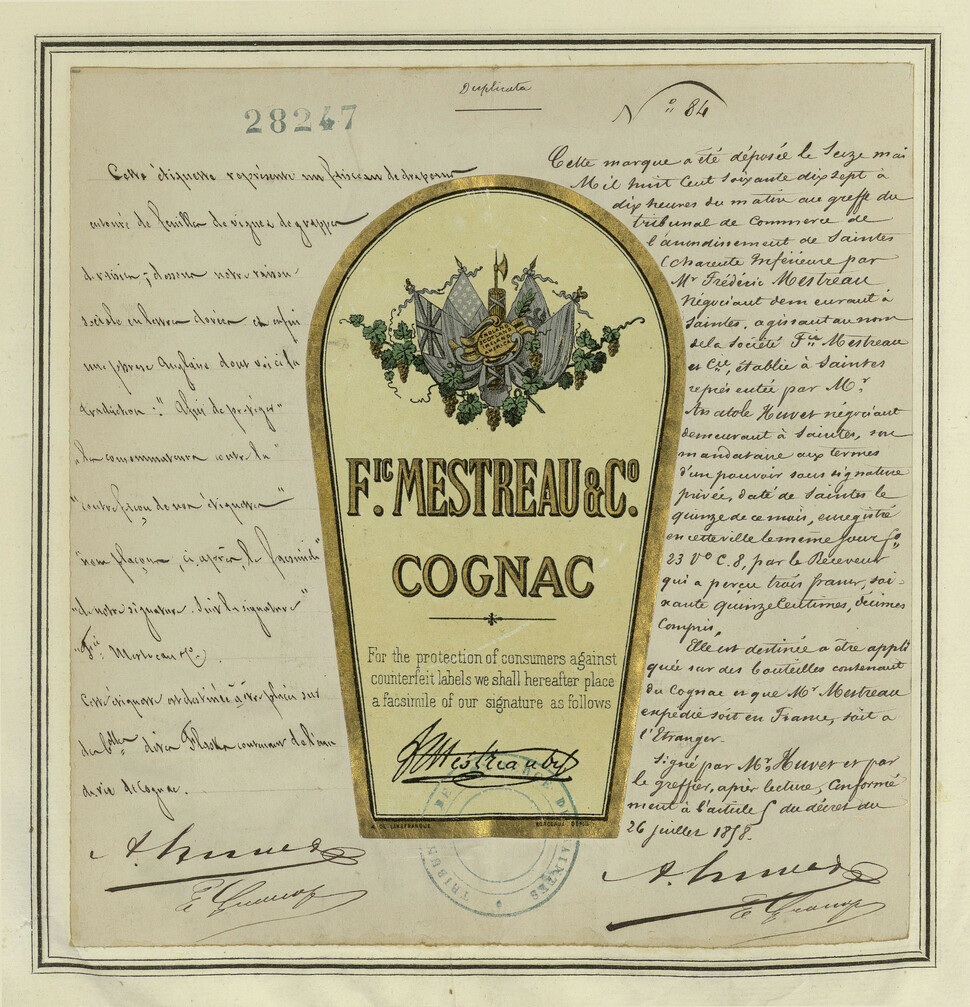 Duplicata
28247
N° 84
Cette étiquette représente un faisceau de drapeaux
entouré de feuilles de vignes de grappes
de raisin ; dessous notre raison
sociale en lettres dorées et enfin
une phrase Anglaise dont voici la
traduction : " Afin de protéger "
" les consommateurs contre la "
" contrefaçon de nos étiquettes
" nous plaçons, ci après le facsimile "
" de notre signature. Suit la signature "
" Fric Mestreau & Co.
Cette étiquette est destinée à être placée sur
des contenant de l'eau
de vie de Cognac.
A. Huvet
Cette marque a été déposée le Seize mai
Mil huit Cent soixante dix sept à
dix heures du matin au greffe du
tribunal de Commerce de
l'arrondissement de Saintes
(Charente Inférieure par
Mr Frédéric Mestreau
Négociant demeurant à
Saintes, agissant au nom
de la société Fric Mestreau
et Cie, établie à Saintes
représentée par Mr
Anatole Huvet négociant
demeurant à Saintes, son
mandataire aux termes
d'un pouvoir sous signature
privée, daté de Saintes le
quinze de ce mois, enregistré
en cette ville le même jour fo
23 Vo C. 8, par le Receveur
qui a perçu trois francs, soi-
xante quinze Centimes, décimes
Compris,
Elle est destinée a être appli
quée sur des bouteilles contenant
du Cognac et que Mr Mestreau
expédie soit en France, soit à
l'Etranger.
Signé par Mr Huvet et par
le greffier, après lecture, Conformé
ment à l'article 5 du décret du
26 juillet 1858.
A. Huvet
FRIC MESTREAU & CO.
COGNAC
For the protection of consumers against
counterfeit labels we shall hereafter place
a facsimile of our signature as follows
FMestreau & Co
BORDEAUX
TRIBUNAL DE COMMERCE DE SAINTES